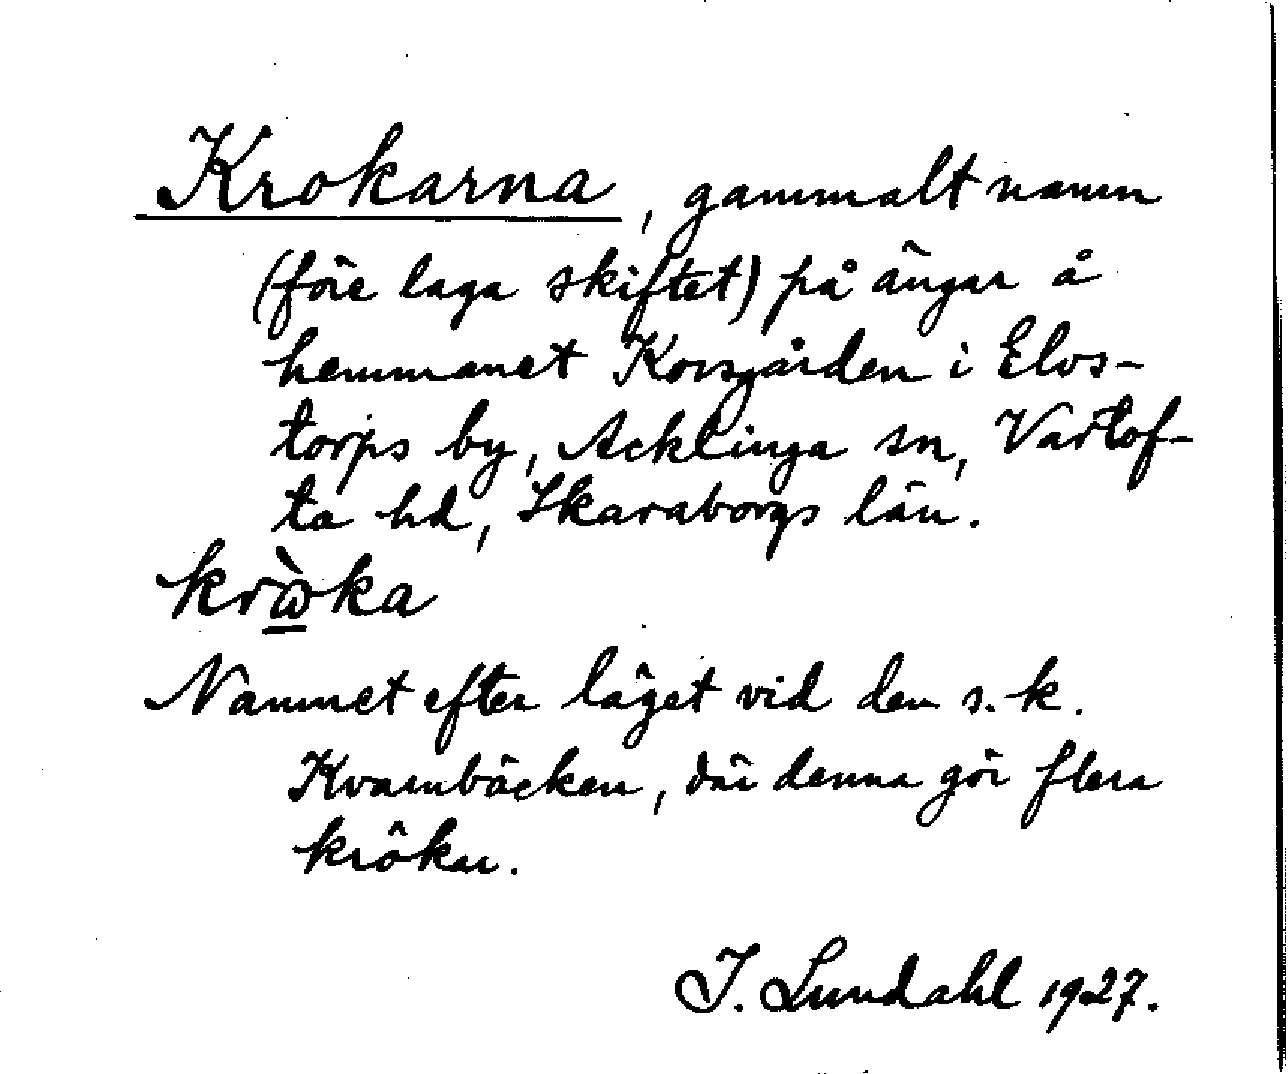 Krokarna, gammalt namn
(före laga skiftet) på ängar å
hemmanet Korsgården i Elvs-
torps by, Acklinga sn, Vartof-
ta hd, Skaraborgs län.
krὼka
Namnet efter läget vid den s.k.
Kvarnbäcken, där denna gör flera
krökar.
I. Lundahl 1927.